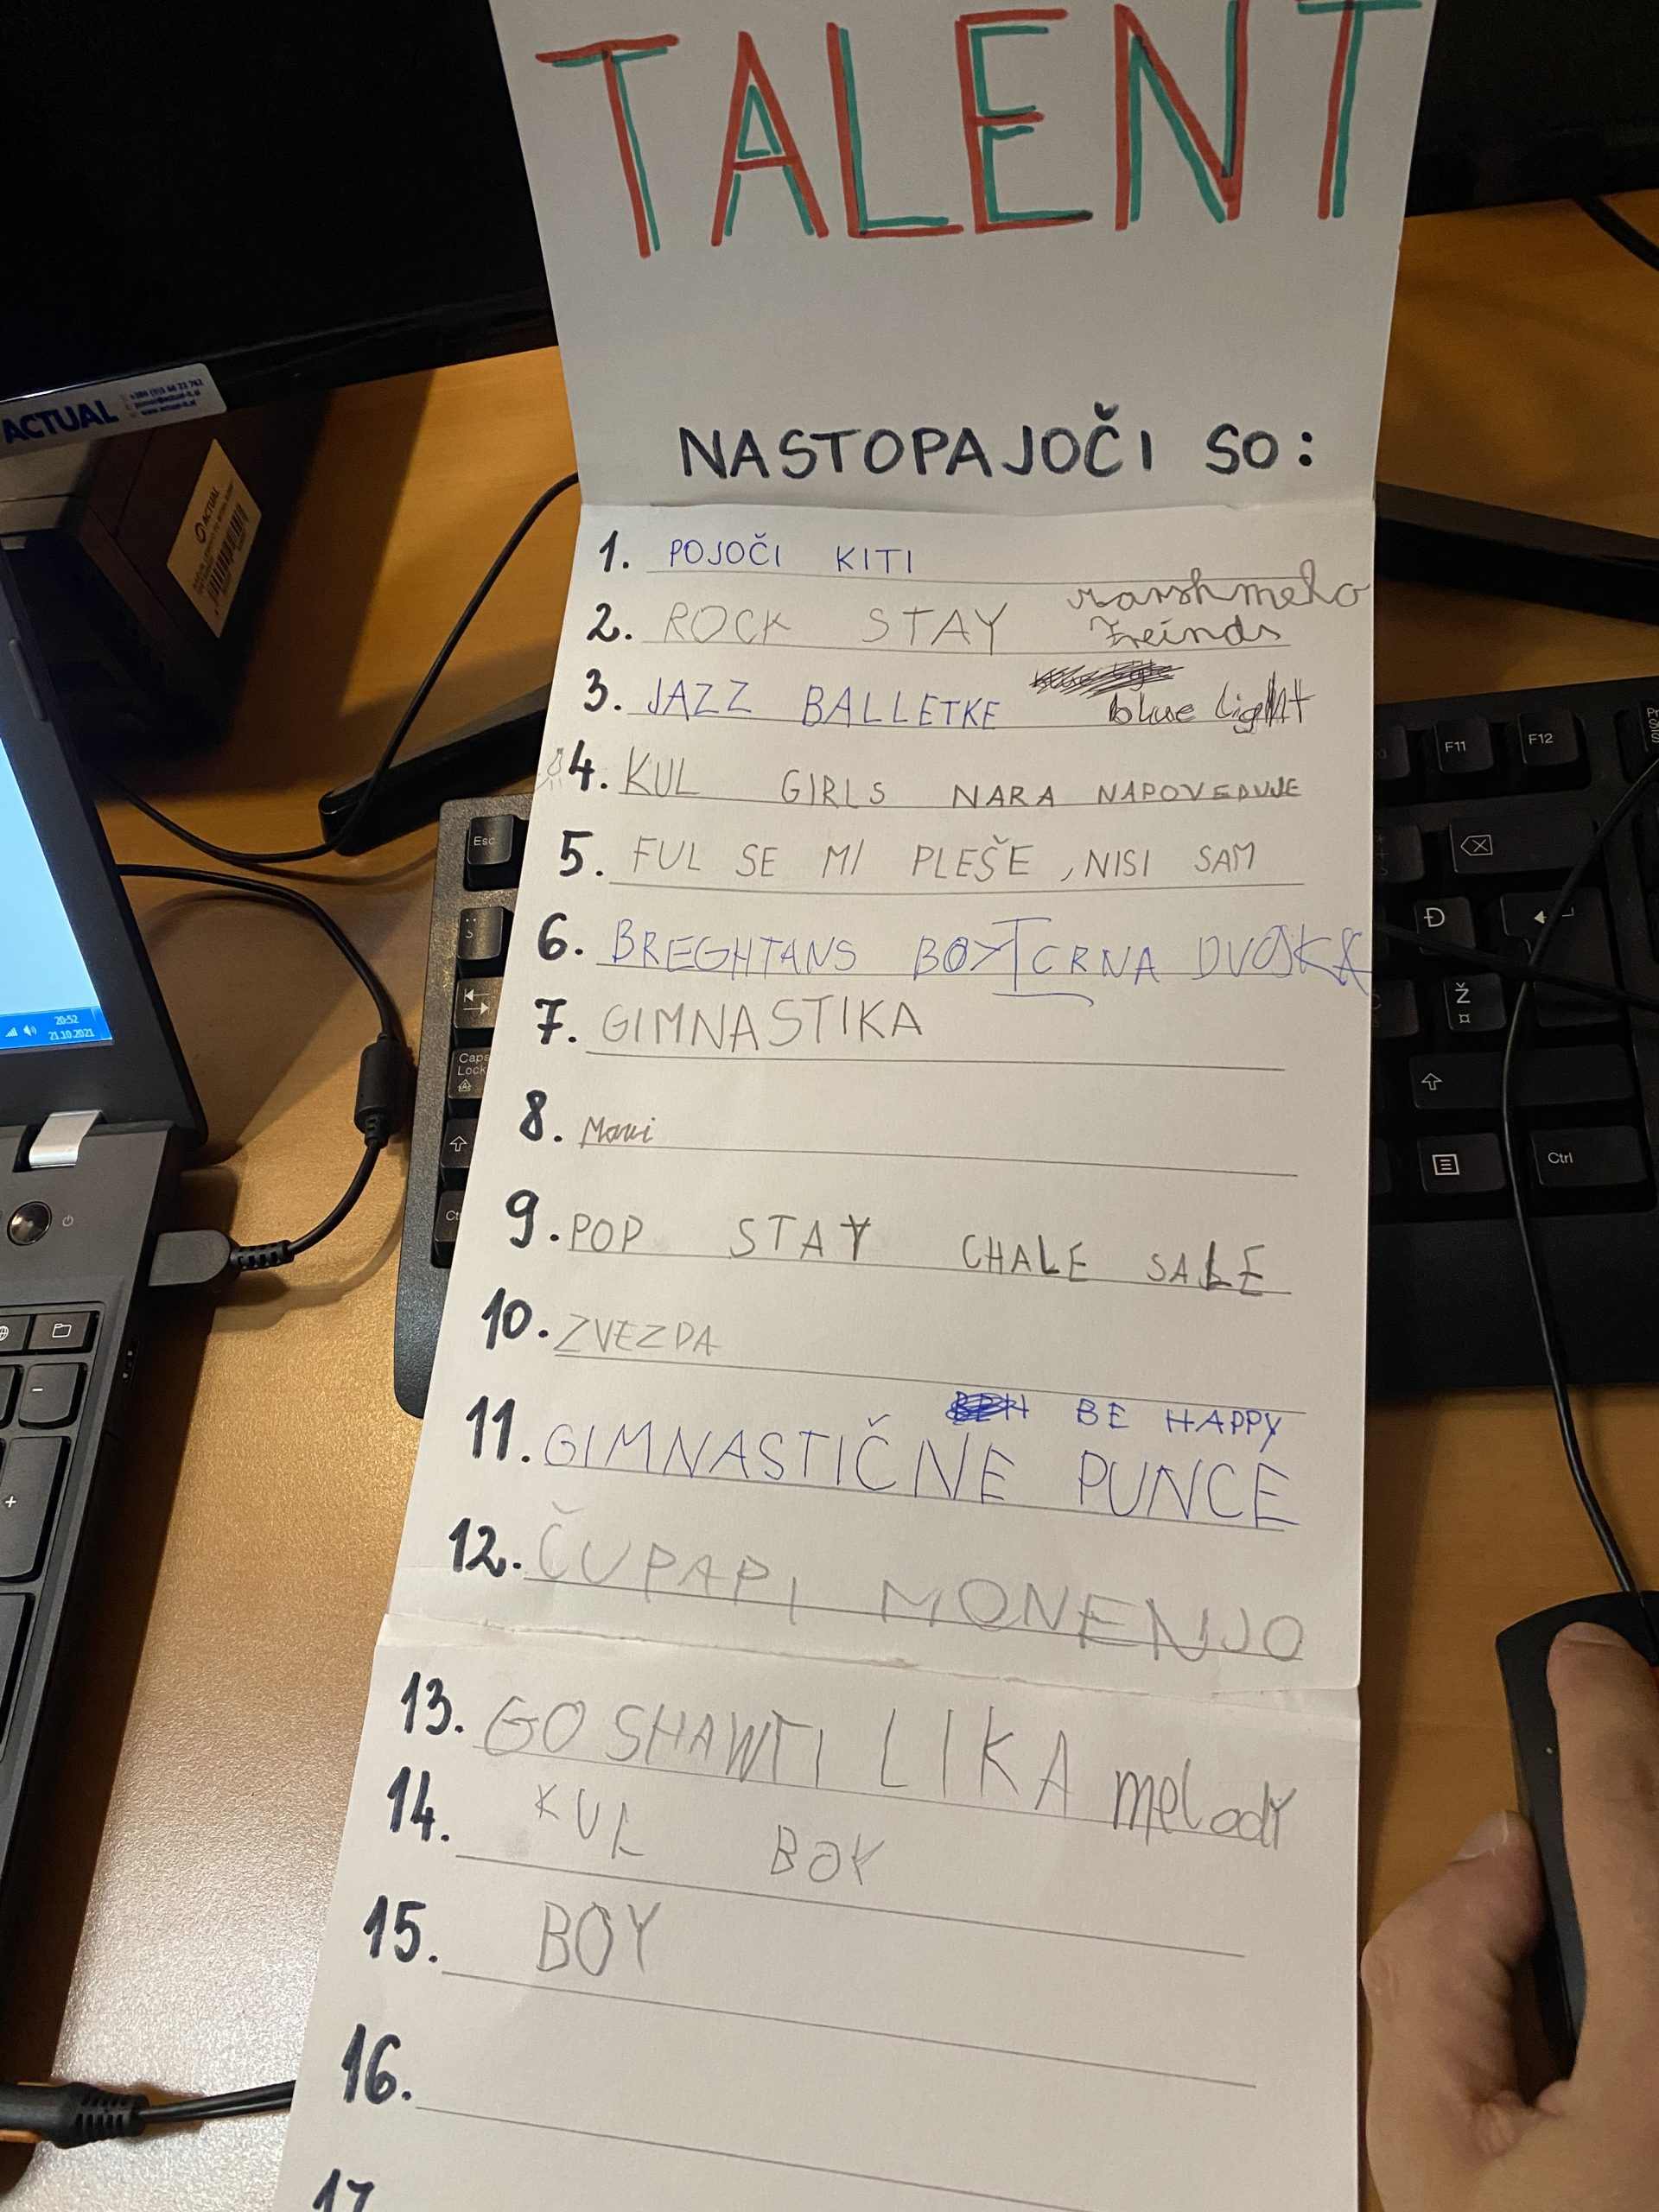 TALENT
NASTOPAJOČI SO:
1. POJOČI KITI
2. ROCK STAY marshmelo
freinds
3. JAZZ BALLETKE blue light
4. KUL GIRLS NARA NAPOVEDUJE
5. FUL SE MI PLEŠE, NISI SAM
6. BREGHTANS BOY CRNA DVOJKA
7. GIMNASTIKA
8.
9. POP STAY CHALE SALE
10. ZVEZDA
BE HAPPY
11. GIMNASTIČNE PUNCE
12. ČUPAPI MONENJO
13. GO SHAWTI LIKA melody
14. KUL BOY
15. BOY
16.
17
ACTUAL
www.actual-it.si
ACTUAL
20:52
21.10.2021
Esc
Caps
Lock
F11
F12
Đ
Ž
Ctrl